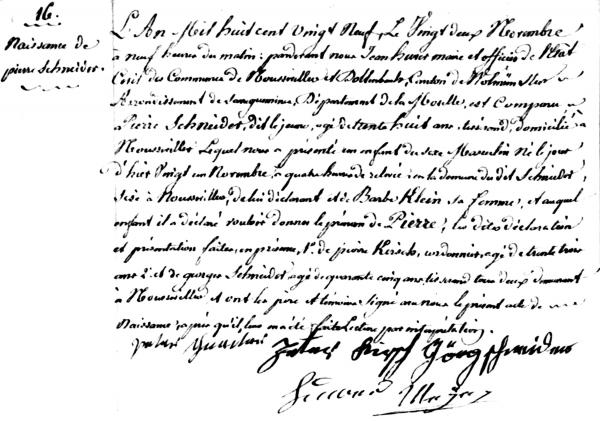 16.
Naissance de
pierre Schneider.
L'An Mil huit cent Vingt Neuf, Le Vingt deux Novembre
à neuf heures du matin: pardevant nous Jean maire et officier de l'Etat
Civil des Communes de Nousseviller et Canton de Wolmünster
Arrondissement de Sarreguemines, Département de la Moselle, est Comparu
Pierre Schneider, dit le jeune, agé de trente huit ans tisserand, domicilié à
Nousseviller Lequel nous a présenté un enfant du sexe Masculin Né le jour
d'hier Vingt un Novembre, à quatre heures de relevée en la demeure du dit Schneider
Sise à Nousseviller, de lui déclarant et de Barbe Klein sa femme, et auquel
enfant il a déclaré vouloir donner le prénom de Pierre, les dites déclaration
et présentation faites, en présence, 1º de pierre Kirsch, cordonnier, agé de trente trois
ans 2º et de george Schneider agé de quarante cinq ans, tisserand tous deux demeurant
à Nousseviller et ont les père et témoins signé avec nous le présent acte de
Naissance après qu'il leur en a été faite Lecture par interprétation.
Peter Schneider Peter Kirsch Görg Schneider